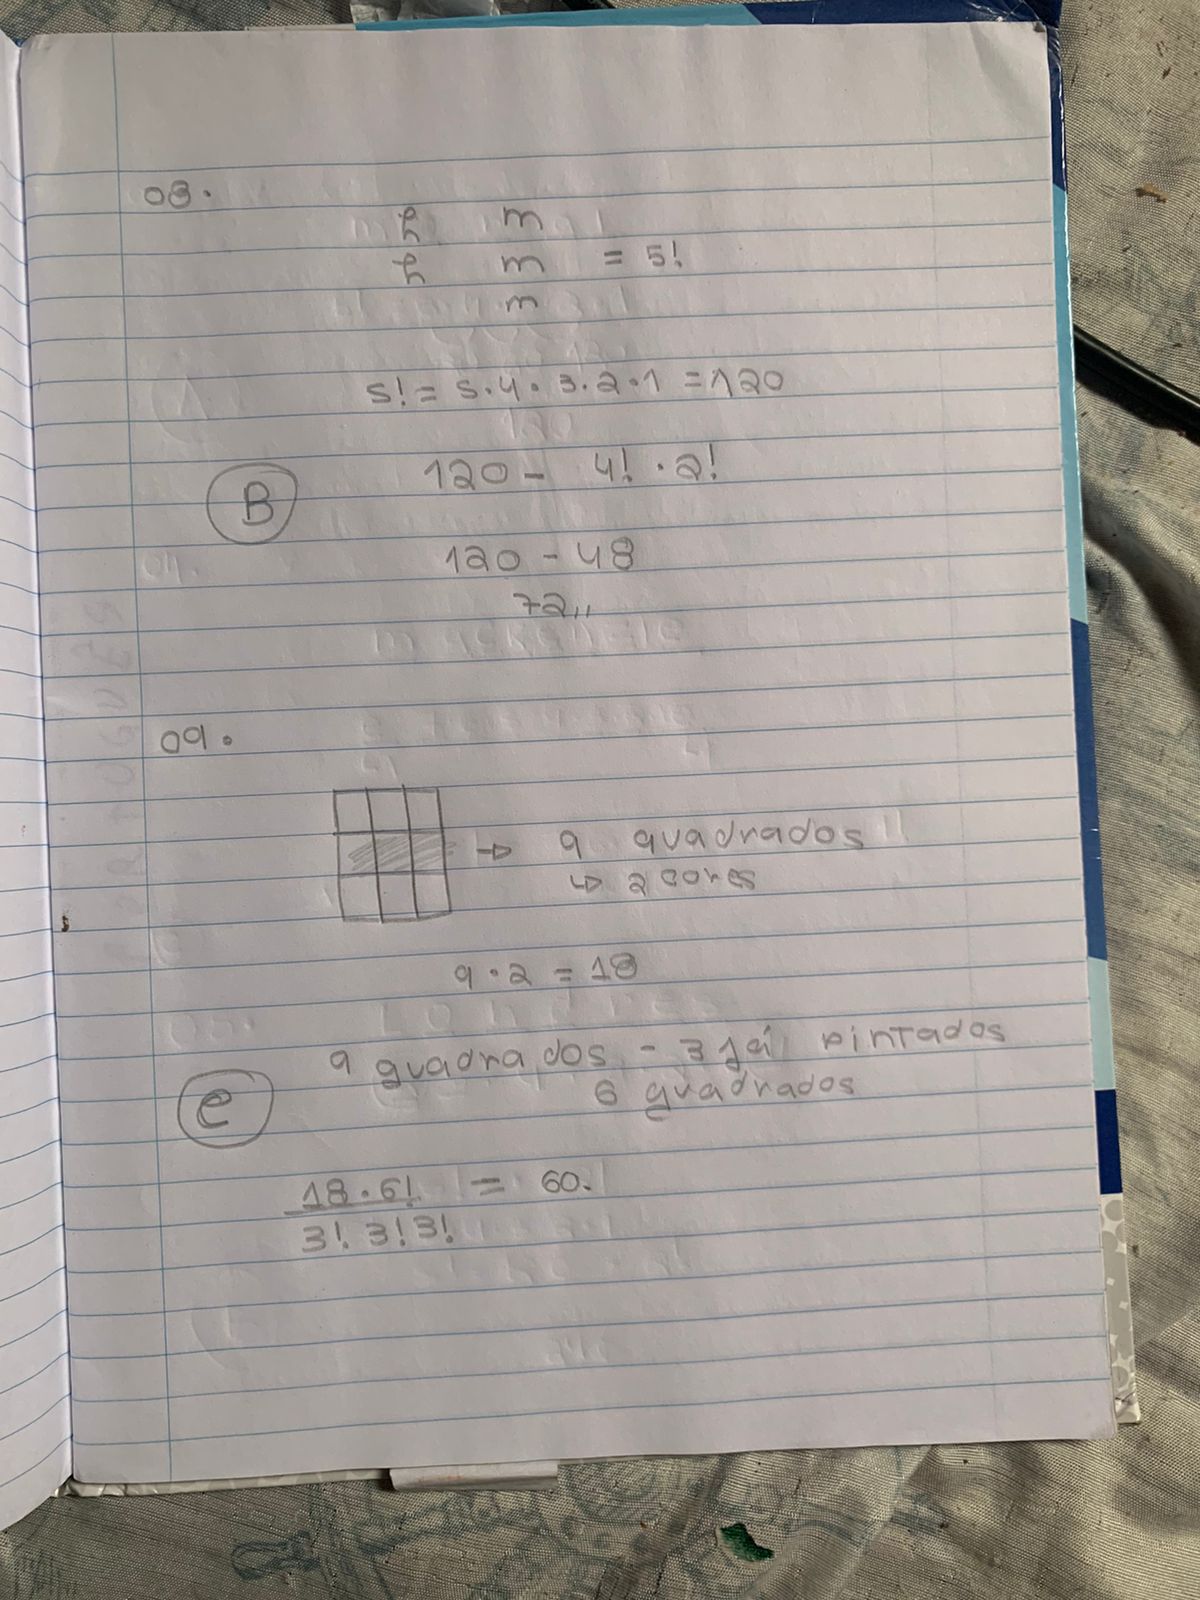 08.
h m
h m = 5!
m
5! = 5.4.3.2.1 = 120
120 - 4! . 2!
B
120 - 48
72,,
09.
→ 9 quadrados
↳ 2 cores
9.2 = 18
9 quadrados - 3 já pintados
6 quadrados
e
18.6! = 60.
3! 3! 3!